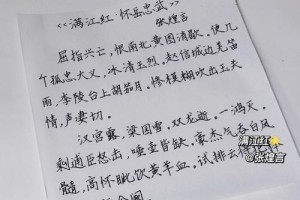 《满江红·怀岳忠武》
张煌言
屈指兴亡，恨南北黄图消歇。便几
个孤忠大义，冰清玉烈。赵信城边羌笛
雨，李陵台上胡笳月。惨模糊吹出玉关
情，声凄切。
汉宫露，梁园雪。双龙逝，一鸿灭。
剩逋臣怒击，唾壶皆缺。豪杰气吞白凤
髓，高怀眦饮黄羊血。试排云
满江红
@张煌言